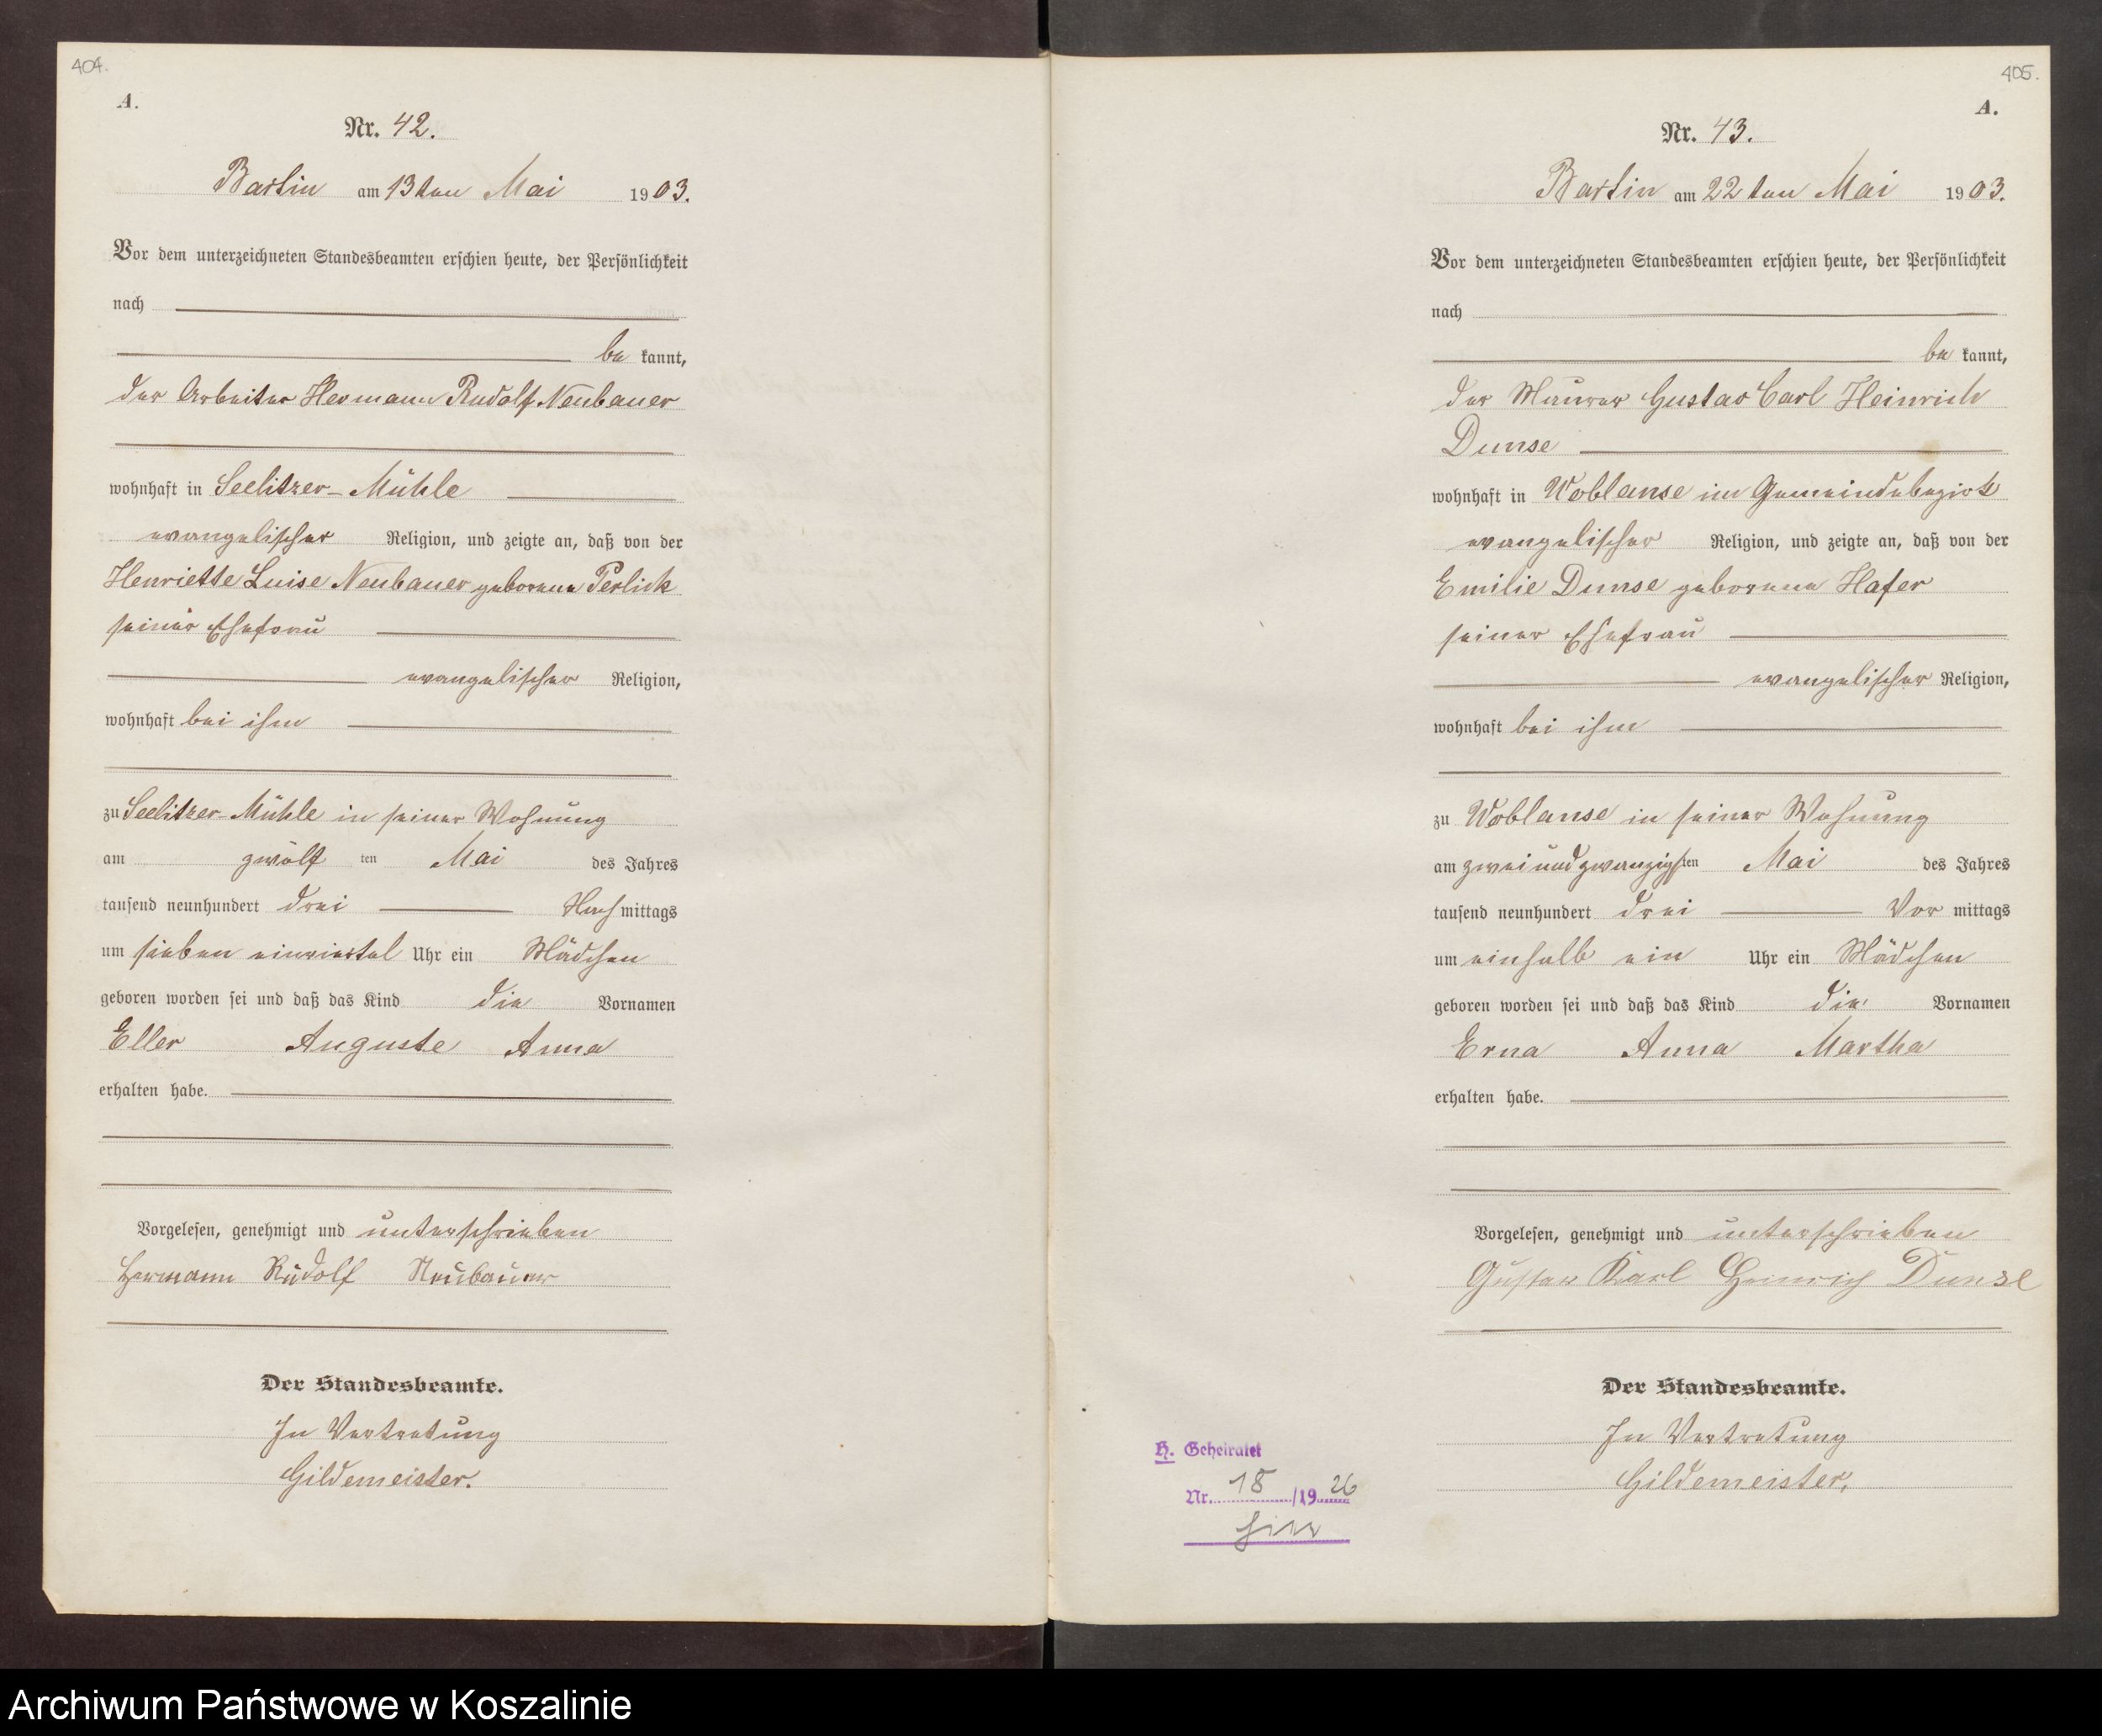 404.
A.
Nr. 42.
Bartin am 13ten Mai 1903.
Vor dem unterzeichneten Standesbeamten erschien heute, der Persönlichkeit
nach
be kannt,
der Arbeiter Hermann Rudolf Neubauer
wohnhaft in Seelitzer-Mühle
evangelischer Religion, und zeigte an, daß von der
Henriette Luise Neubauer geborene Perlick
seiner Ehefrau
evangelischer Religion,
wohnhaft bei ihm
zu Seelitzer-Mühle in seiner Wohnung
am zwölf ten Mai des Jahres
tausend neunhundert drei Nachmittags
um sieben einviertel Uhr ein Mädchen
geboren worden sei und daß das Kind die Vornamen
Eller Auguste Anna
erhalten habe.
Vorgelesen, genehmigt und unterschrieben
Hermann Rudolf Neubauer
Der Standesbeamte.
In Vertretung
Gildemeister.
405.
A.
Nr. 43.
Bartin am 22ten Mai 1903.
Vor dem unterzeichneten Standesbeamten erschien heute, der Persönlichkeit
nach
be kannt,
der Maurer Gustav Carl Heinrich
Dunse
wohnhaft in Woblanse im Gemeindebezirk
evangelischer Religion, und zeigte an, daß von der
Emilie Dunse geborene Hafer
seiner Ehefrau
evangelischer Religion,
wohnhaft bei ihm
zu Woblanse in seiner Wohnung
am zweiundzwanzigsten Mai des Jahres
tausend neunhundert drei Vor mittags
um einhalb ein Uhr ein Mädchen
geboren worden sei und daß das Kind die Vornamen
Erna Anna Martha
erhalten habe.
Vorgelesen, genehmigt und unterschrieben
Gustav Karl Heinrich Dunse
Der Standesbeamte.
In Vertretung
Gildemeister.
H. Geheiratet
Nr. 18 /1926
Archiwum Państwowe w Koszalinie